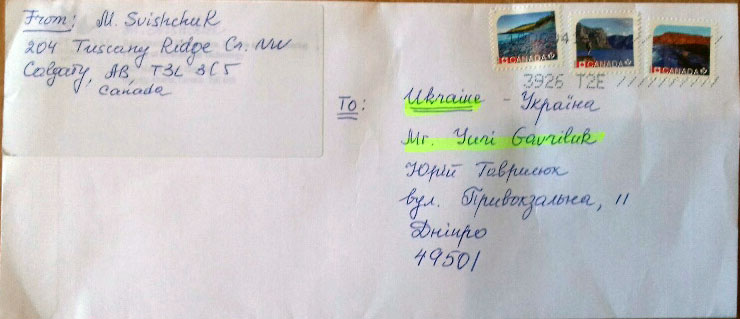 From: M. Svishchuk
204 Tuscany Ridge Cr. NW
Calgary, AB, T3L 3C5
Canada
CANADA P
CANADA P
CANADA P
3926 T2E
To:
Ukraine - Україна
Mr. Yuri Gavriluk
Юрій Гаврилюк
вул. Привокзальна, 11
Дніпро
49501